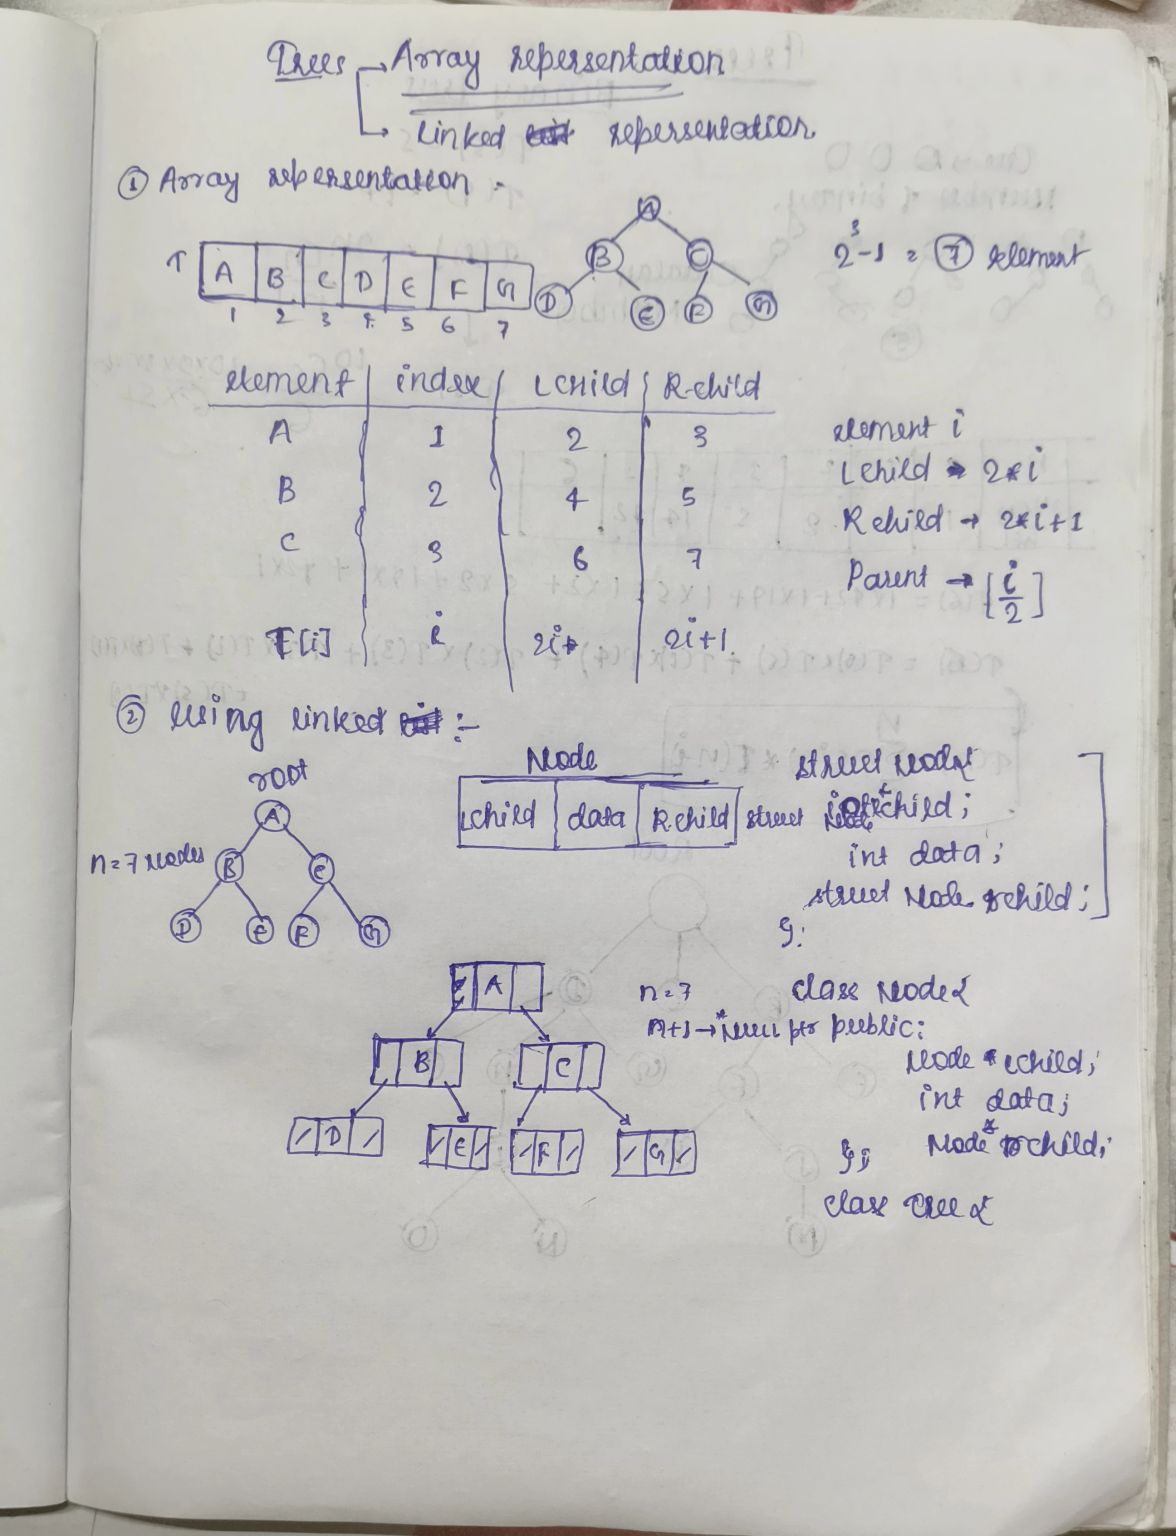 Trees → Array repersentation
→ Linked repersentation
① Array repersentation :-
T A B C D E F G
1 2 3 4 5 6 7
A
B C
D E F G
2³-1 = ⑦ element
element index Lchild Rchild
A 1 2 3
B 2 4 5
C 3 6 7
T[i] i 2i 2i+1
element i
Lchild → 2*i
Rchild → 2*i+1
Parent → [i/2]
② Using linked :-
root
A
n=7 Nodes B C
D E F G
Node
Lchild data Rchild
struct Node{
struct Node *lchild;
int data;
struct Node *rchild;
};
A
B C
D E F G
n=7
n+1 → Null ptr
class Node{
public:
Node *lchild;
int data;
Node *rchild;
};
class Tree {